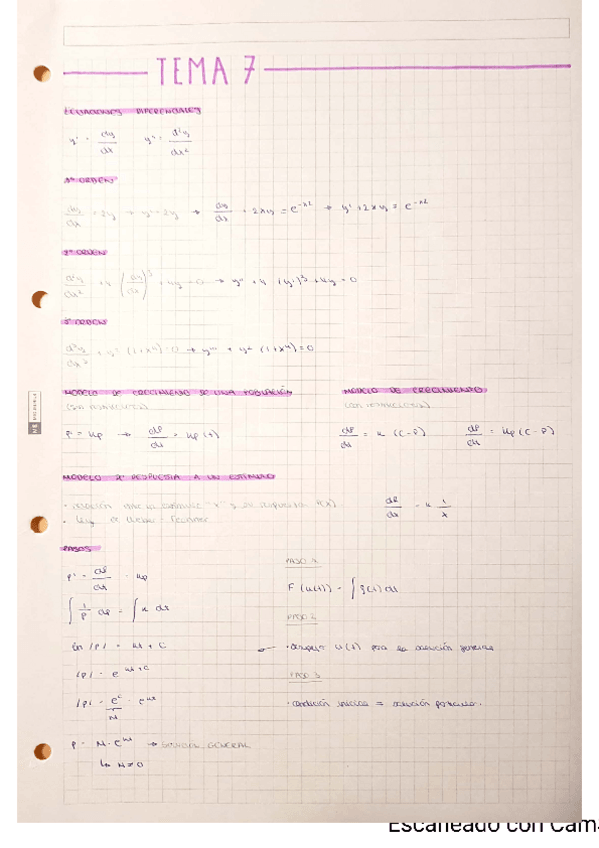 TEMA 7
ECUACIONES DIFERENCIALES
y' = dy/dx   y'' = d²y/dx²
1º ORDEN
dy/dx + 2y → y' + 2y → dy/dx + 2xy = e^-x2 → y' + 2xy = e^-x2
2º ORDEN
d²y/dx² + 4 (dy/dx)³ + 4y = 0 → y'' + 4 (y')³ + 4y = 0
3º ORDEN
→ y''' + y² (1+x⁴) = 0
MODELO DE CRECIMIENTO DE UNA POBLACIÓN
P' = kp → dP/dt = kp(t)
MODELO DE CRECIMIENTO
dP/dt = k (C-P)   dP/dt = kp (C-P)
MODELO DE RESPUESTA A UN ESTÍMULO
· relación entre un estímulo "x" y su respuesta R(x)
· Ley de Weber-Fechner
dR/dx = k 1/x
PASOS
P' = dP/dt = kp
∫ 1/P dp = ∫ k dt
ln |P| = kt + C
|P| = e^kt+C
|P| = e^c · e^kt
N
P = N · e^kt → SOLUCIÓN GENERAL
↳ N ≠ 0
PASO 1
F (u(t)) = ∫ g(t) dt
PASO 2
· despejar u(t) para la solución general
PASO 3
· condición inicial = solución particular.
Escaneado con Cam